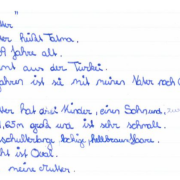 "
tter
ter heißt Fatma.
9 Jahre alt.
mt aus der Türkei.
ahren ist sie mit meinen Vater nach
ter hat drei Kinder, einen Sohn und,
1,65m groß und ist sehr schmal.
schulterlange lockige, hellbraun
ht ist Oval.
meine Mutter.